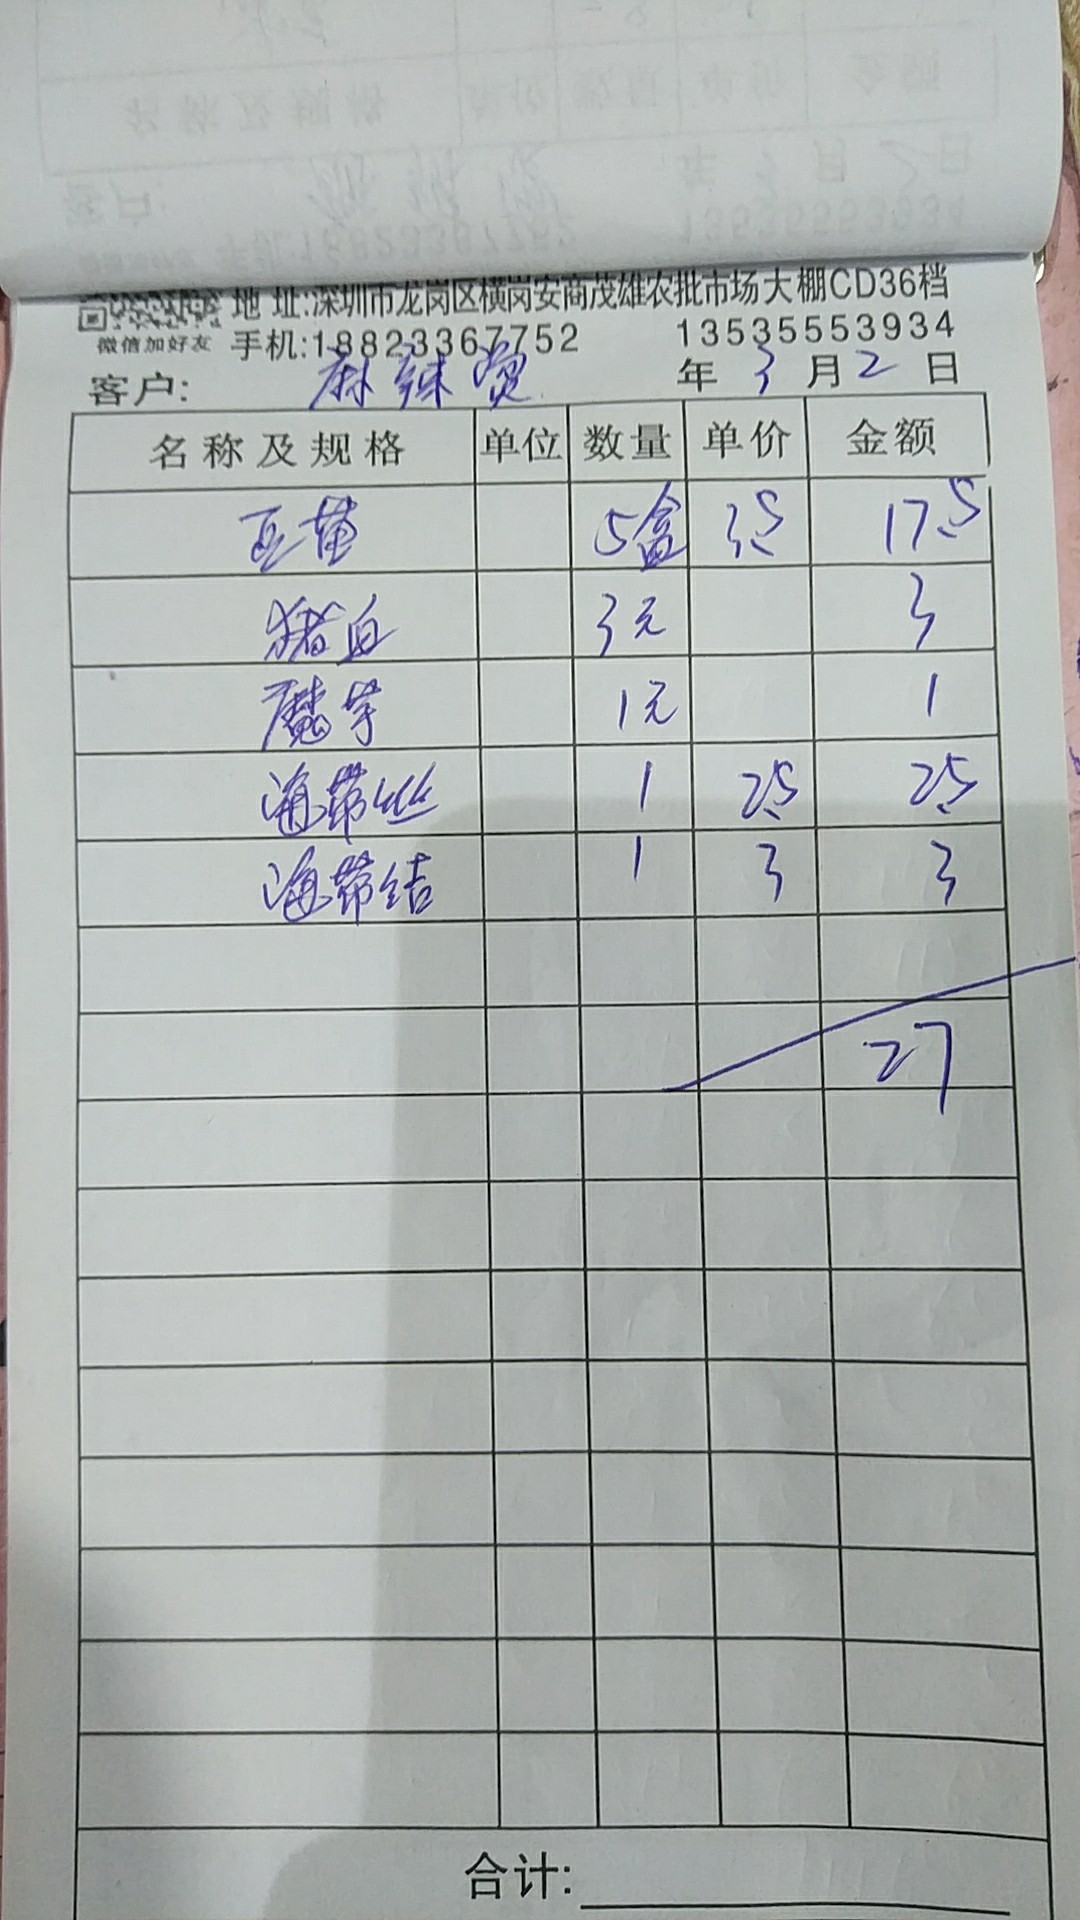 地 址:深圳市龙岗区横岗安商茂雄农批市场大棚CD36档
微信加好友 手机:18823367752 13535553934
客户: 麻辣烫 年 3 月 2 日
名称及规格 单位 数量 单价 金额
5盒 3.5 17.5
猪血 3元 3
魔芋 1元 1
海带丝 1 2.5 2.5
海带结 1 3 3
27
合计: